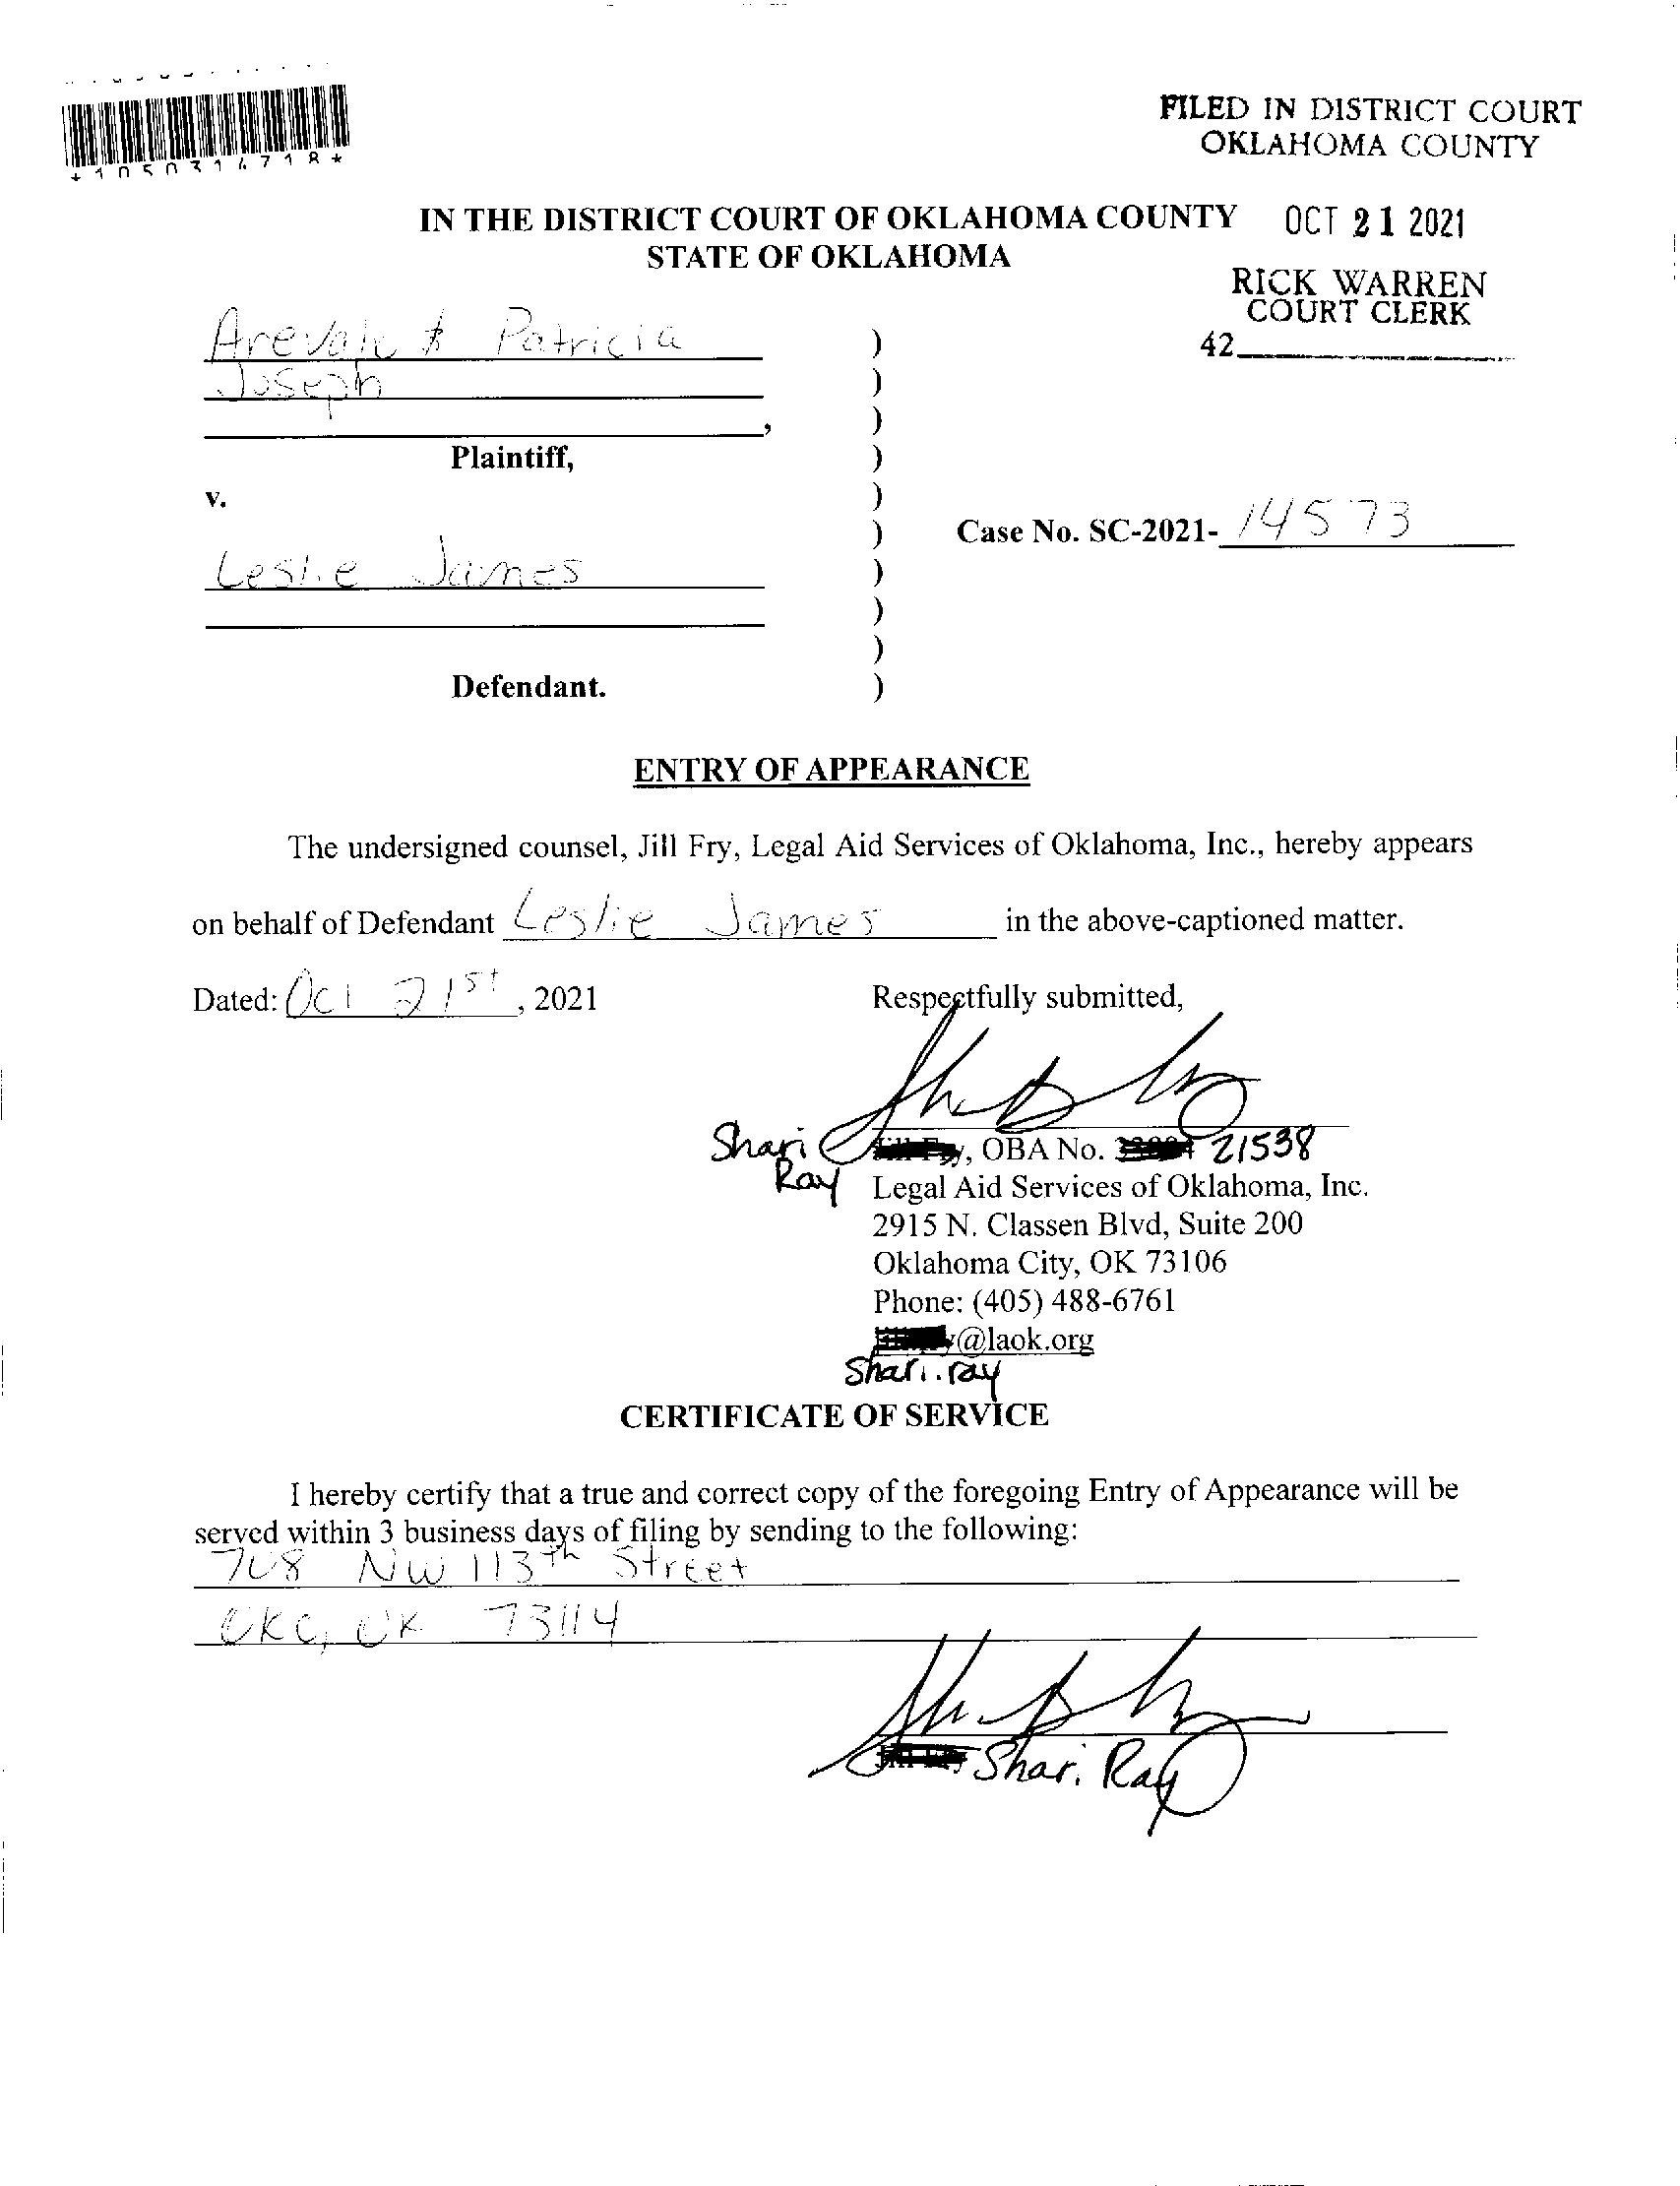 *1050314718*
FILED IN DISTRICT COURT
OKLAHOMA COUNTY
IN THE DISTRICT COURT OF OKLAHOMA COUNTY
STATE OF OKLAHOMA
OCT 21 2021
RICK WARREN
COURT CLERK
42
Arevalo & Patricia )
Joseph )
, )
Plaintiff, )
v. )
Case No. SC-2021- 14573 )
Leslie James )
)
)
Defendant. )
ENTRY OF APPEARANCE
The undersigned counsel, Jill Fry, Legal Aid Services of Oklahoma, Inc., hereby appears
on behalf of Defendant Leslie James in the above-captioned matter.
Dated: Oct 21st, 2021 Respectfully submitted,
Shari Ray
Jill Fry, OBA No. 21538
Legal Aid Services of Oklahoma, Inc.
2915 N. Classen Blvd, Suite 200
Oklahoma City, OK 73106
Phone: (405) 488-6761
@laok.org
shari.ray
CERTIFICATE OF SERVICE
I hereby certify that a true and correct copy of the foregoing Entry of Appearance will be
served within 3 business days of filing by sending to the following:
708 NW 113th Street
OKC, OK 73114
Jill Fry Shari Ray